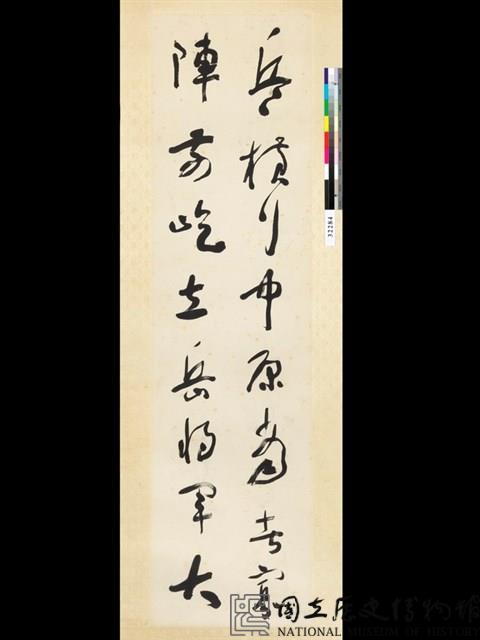 兵橫行中原當者
陣前屹立岳將軍大
國立歷史博物館
NATIONAL MUSEUM OF HISTORY